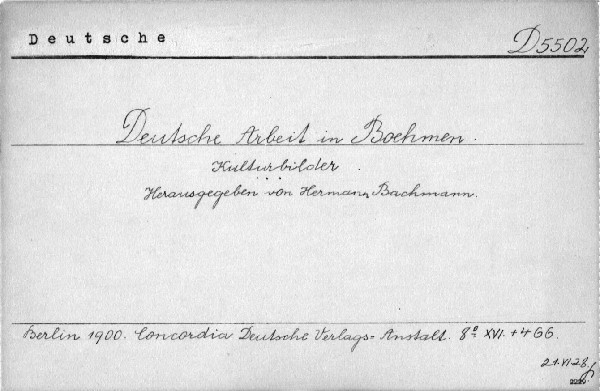 Deutsche D5502
Deutsche Arbeit in Boehmen.
Kulturbilder.
Herausgegeben von Hermann Bachmann.
Berlin 1900. Concordia Deutsche Verlags=Anstalt. 8° XVI. + 466.
21.VI.28.